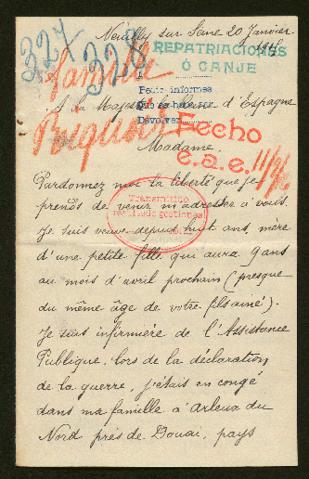 Neuilly sur Seine 20 Janvier
327
328
REPATRIACIONES
Ó CANJE
Famille
Pedir informes
A Sa Majesté la Reine d'Espagne
Devolver
Fecho
e.a.e. 11/96
Madame.
Pardonnez moi la liberté que je
Transmitido
prends de venir m'adresser à vous.
Je suis veuve depuis huit ans, mère
d'une petite fille qui aura 9 ans
au mois d'avril prochain (presque
du même âge de votre fils aîné).
Je suis infirmière de l'Assistance
Publique, lors de la déclaration
de la guerre, j'étais en congé
dans ma famille à Arleux du
Nord près de Douai, pays